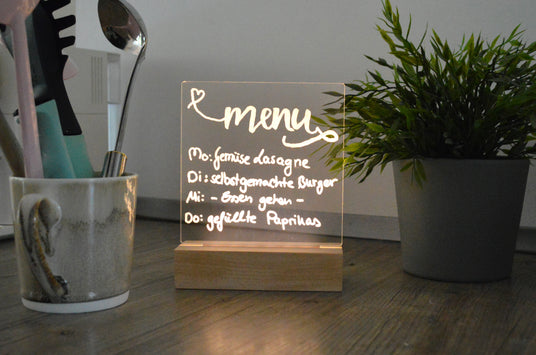 menu
Mo: Gemüse Lasagne
Di: selbstgemachte Burger
Mi: - Essen gehen -
Do: gefüllte Paprikas